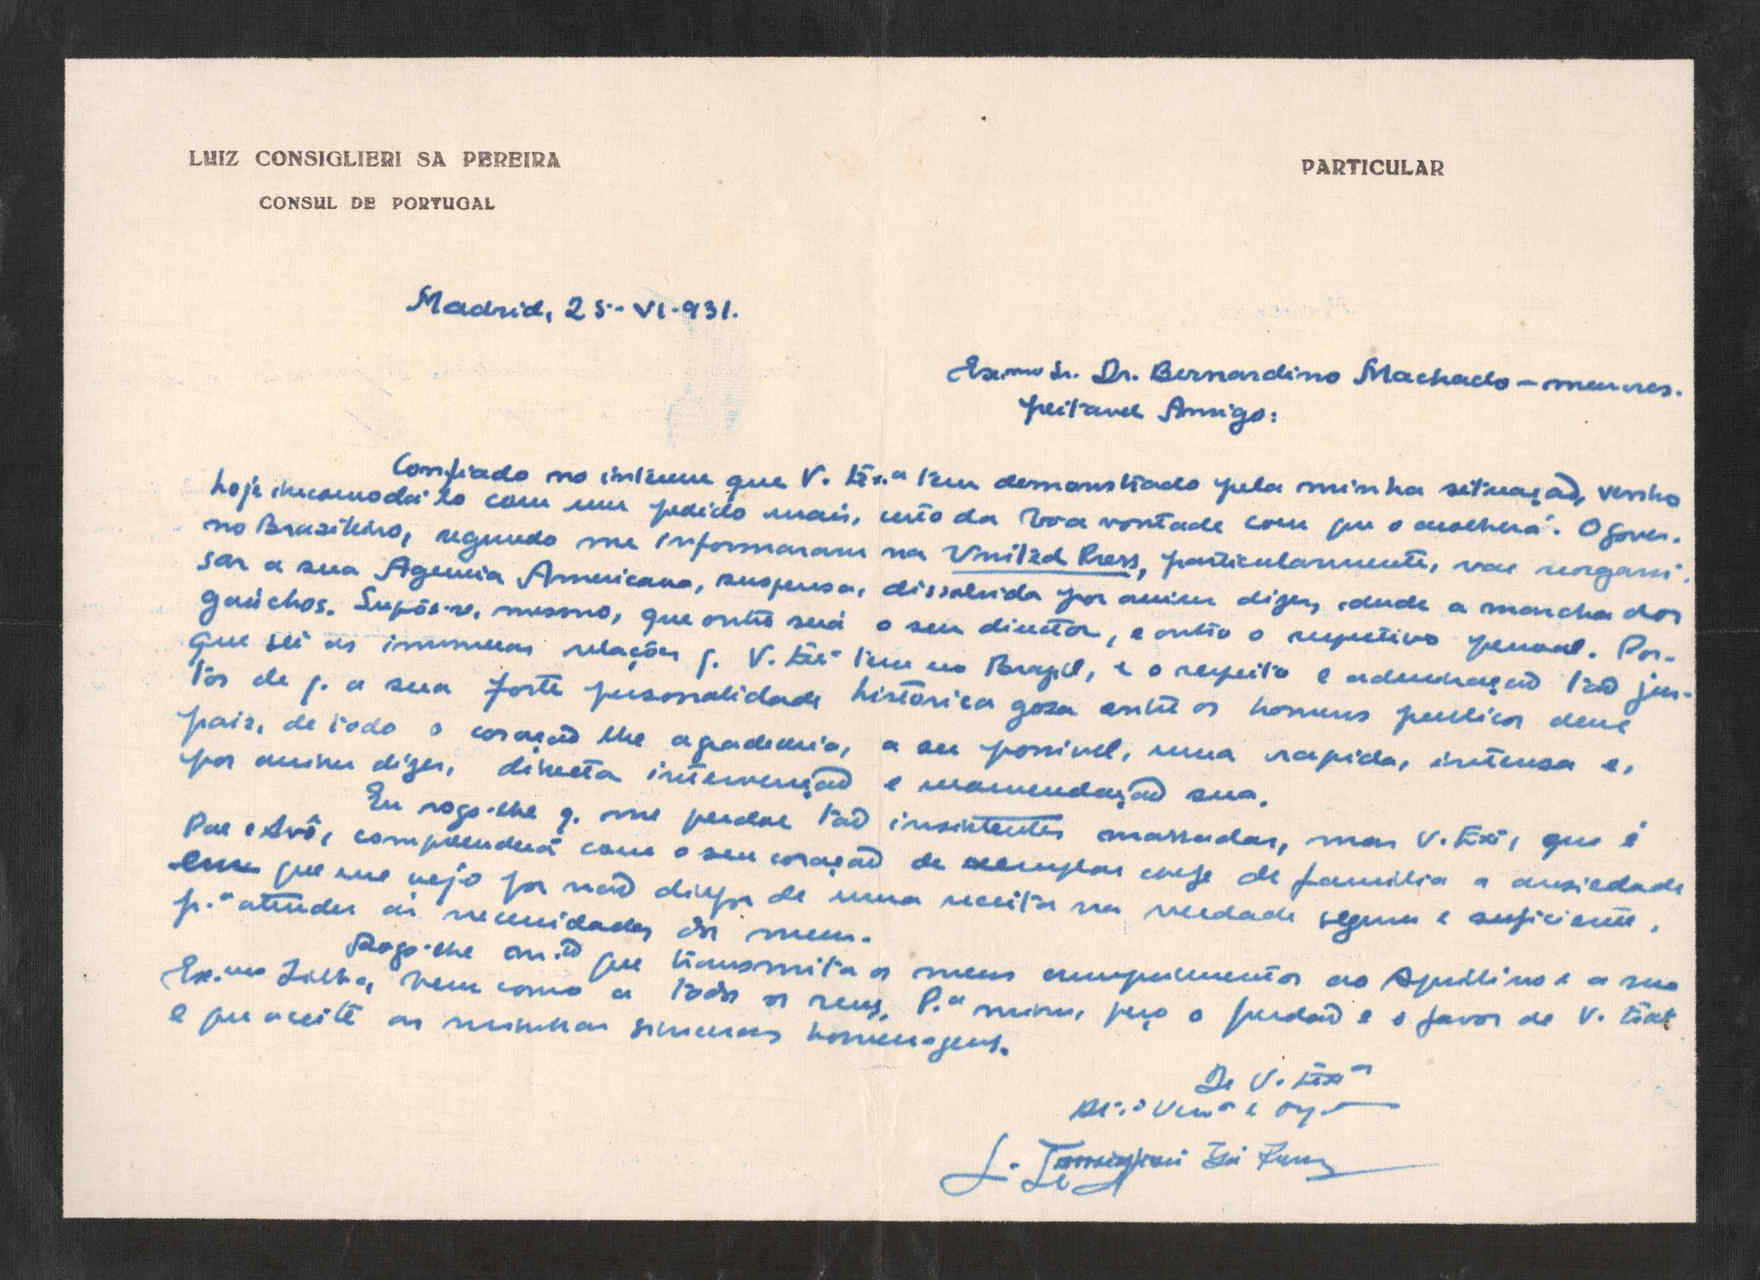 LUIZ CONSIGLIERI SA PEREIRA
CONSUL DE PORTUGAL
PARTICULAR
Madrid, 25-VI-931.
Ex.mo Sr. Dr. Bernardino Machado – meu res-
peitavel Amigo:
Confiado no interesse que V. Ex.a tem demonstrado pela minha situação, venho
hoje incomodá-lo com um pedido mais, certo da boa vontade com que o acolherá. O gover-
no Brazileiro, segundo me informaram na United Press, particularmente, vae reorgani-
sar a sua Agencia Americana, suspensa, dissolvida por assim dizer, desde a marcha dos
gaúchos. Supõe-se, mesmo, que outro será o seu director, e outro o respetivo pessoal. Por-
que sei as inumeras relações q. V. Exa tem no Brazil, e o respeito e admiração tão jus-
tos de q. a sua forte personalidade historica goza entre os homens publicos desse
pais, de todo o coração lhe agradeceria, a ser possivel, uma rapida, intensa e,
por assim dizer, directa intervenção e recomendação sua.
Eu rogo-lhe q. me perdoe tão insistentes massadas, mas V. Exa, que é
Pae e Avô, compreenderá com o seu coração de exemplar chefe de familia a ansiedade
em que me vejo por não dispor de uma receita na verdade segura e suficiente,
p.a atender ás necessidades dos meus.
Rogo-lhe que transmita os meus cumprimentos ao Aquilino e a sua
Ex.ma Filha, bem como a todos os seus. P.a mim, peço o perdão e o favor de V. Exa
e que aceite as minhas sinceras homenagens.
De V. Exa
L. Consiglieri Sá Pereira